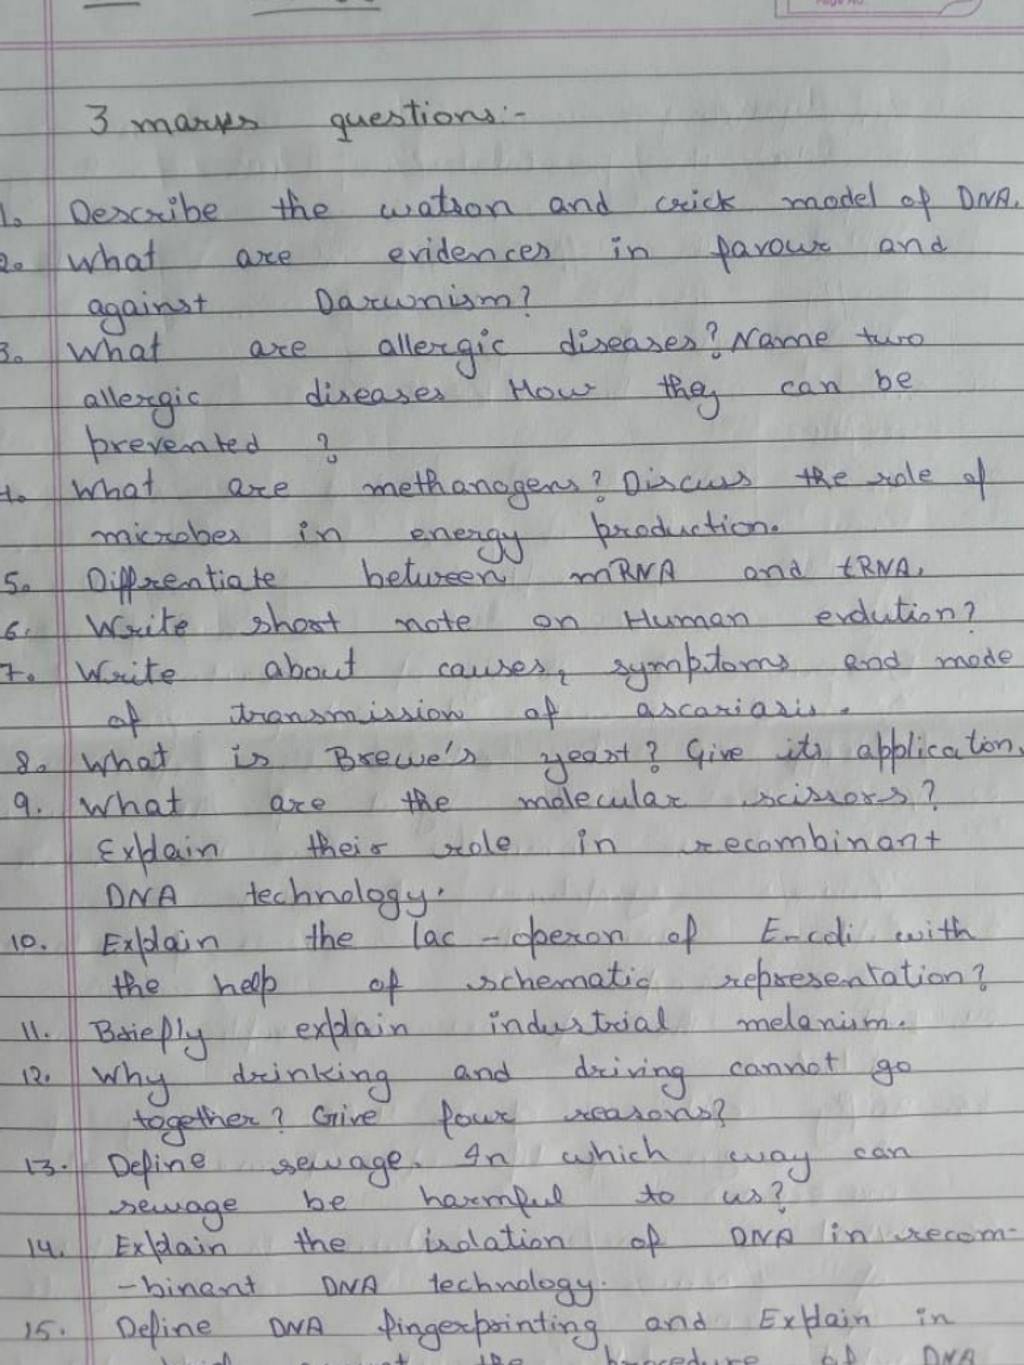 3 marks questions:-
1. Describe the watson and crick model of DNA.
2. What are evidences in favour and
against Darwnism?
3. What are allergic diseases? Name two
allergic diseases How they can be
prevented ?
4. What are methanogens? Discuss the role of
microbes in energy production.
5. Diffrentiate between mRNA and tRNA.
6. Write short note on Human evolution?
7. Write about causes, symptoms and mode
of transmission of ascariasis.
8. What is Brewe's yeast? Give its applicaton,
9. What are the molecular scissors?
Explain their role in recombinant
DNA technology.
10. Explain the lac -operon of E-coli with
the help of schematic representation?
11. Briefly explain industrial melanism.
12. Why drinking and driving cannot go
together? Give four reasons?
13. Define sewage. In which way can
sewage be harmful to us?
14. Explain the isolation of DNA in recom-
-binant DNA technology.
15. Define DNA fingerprinting and Explain in
the procedure of DNA